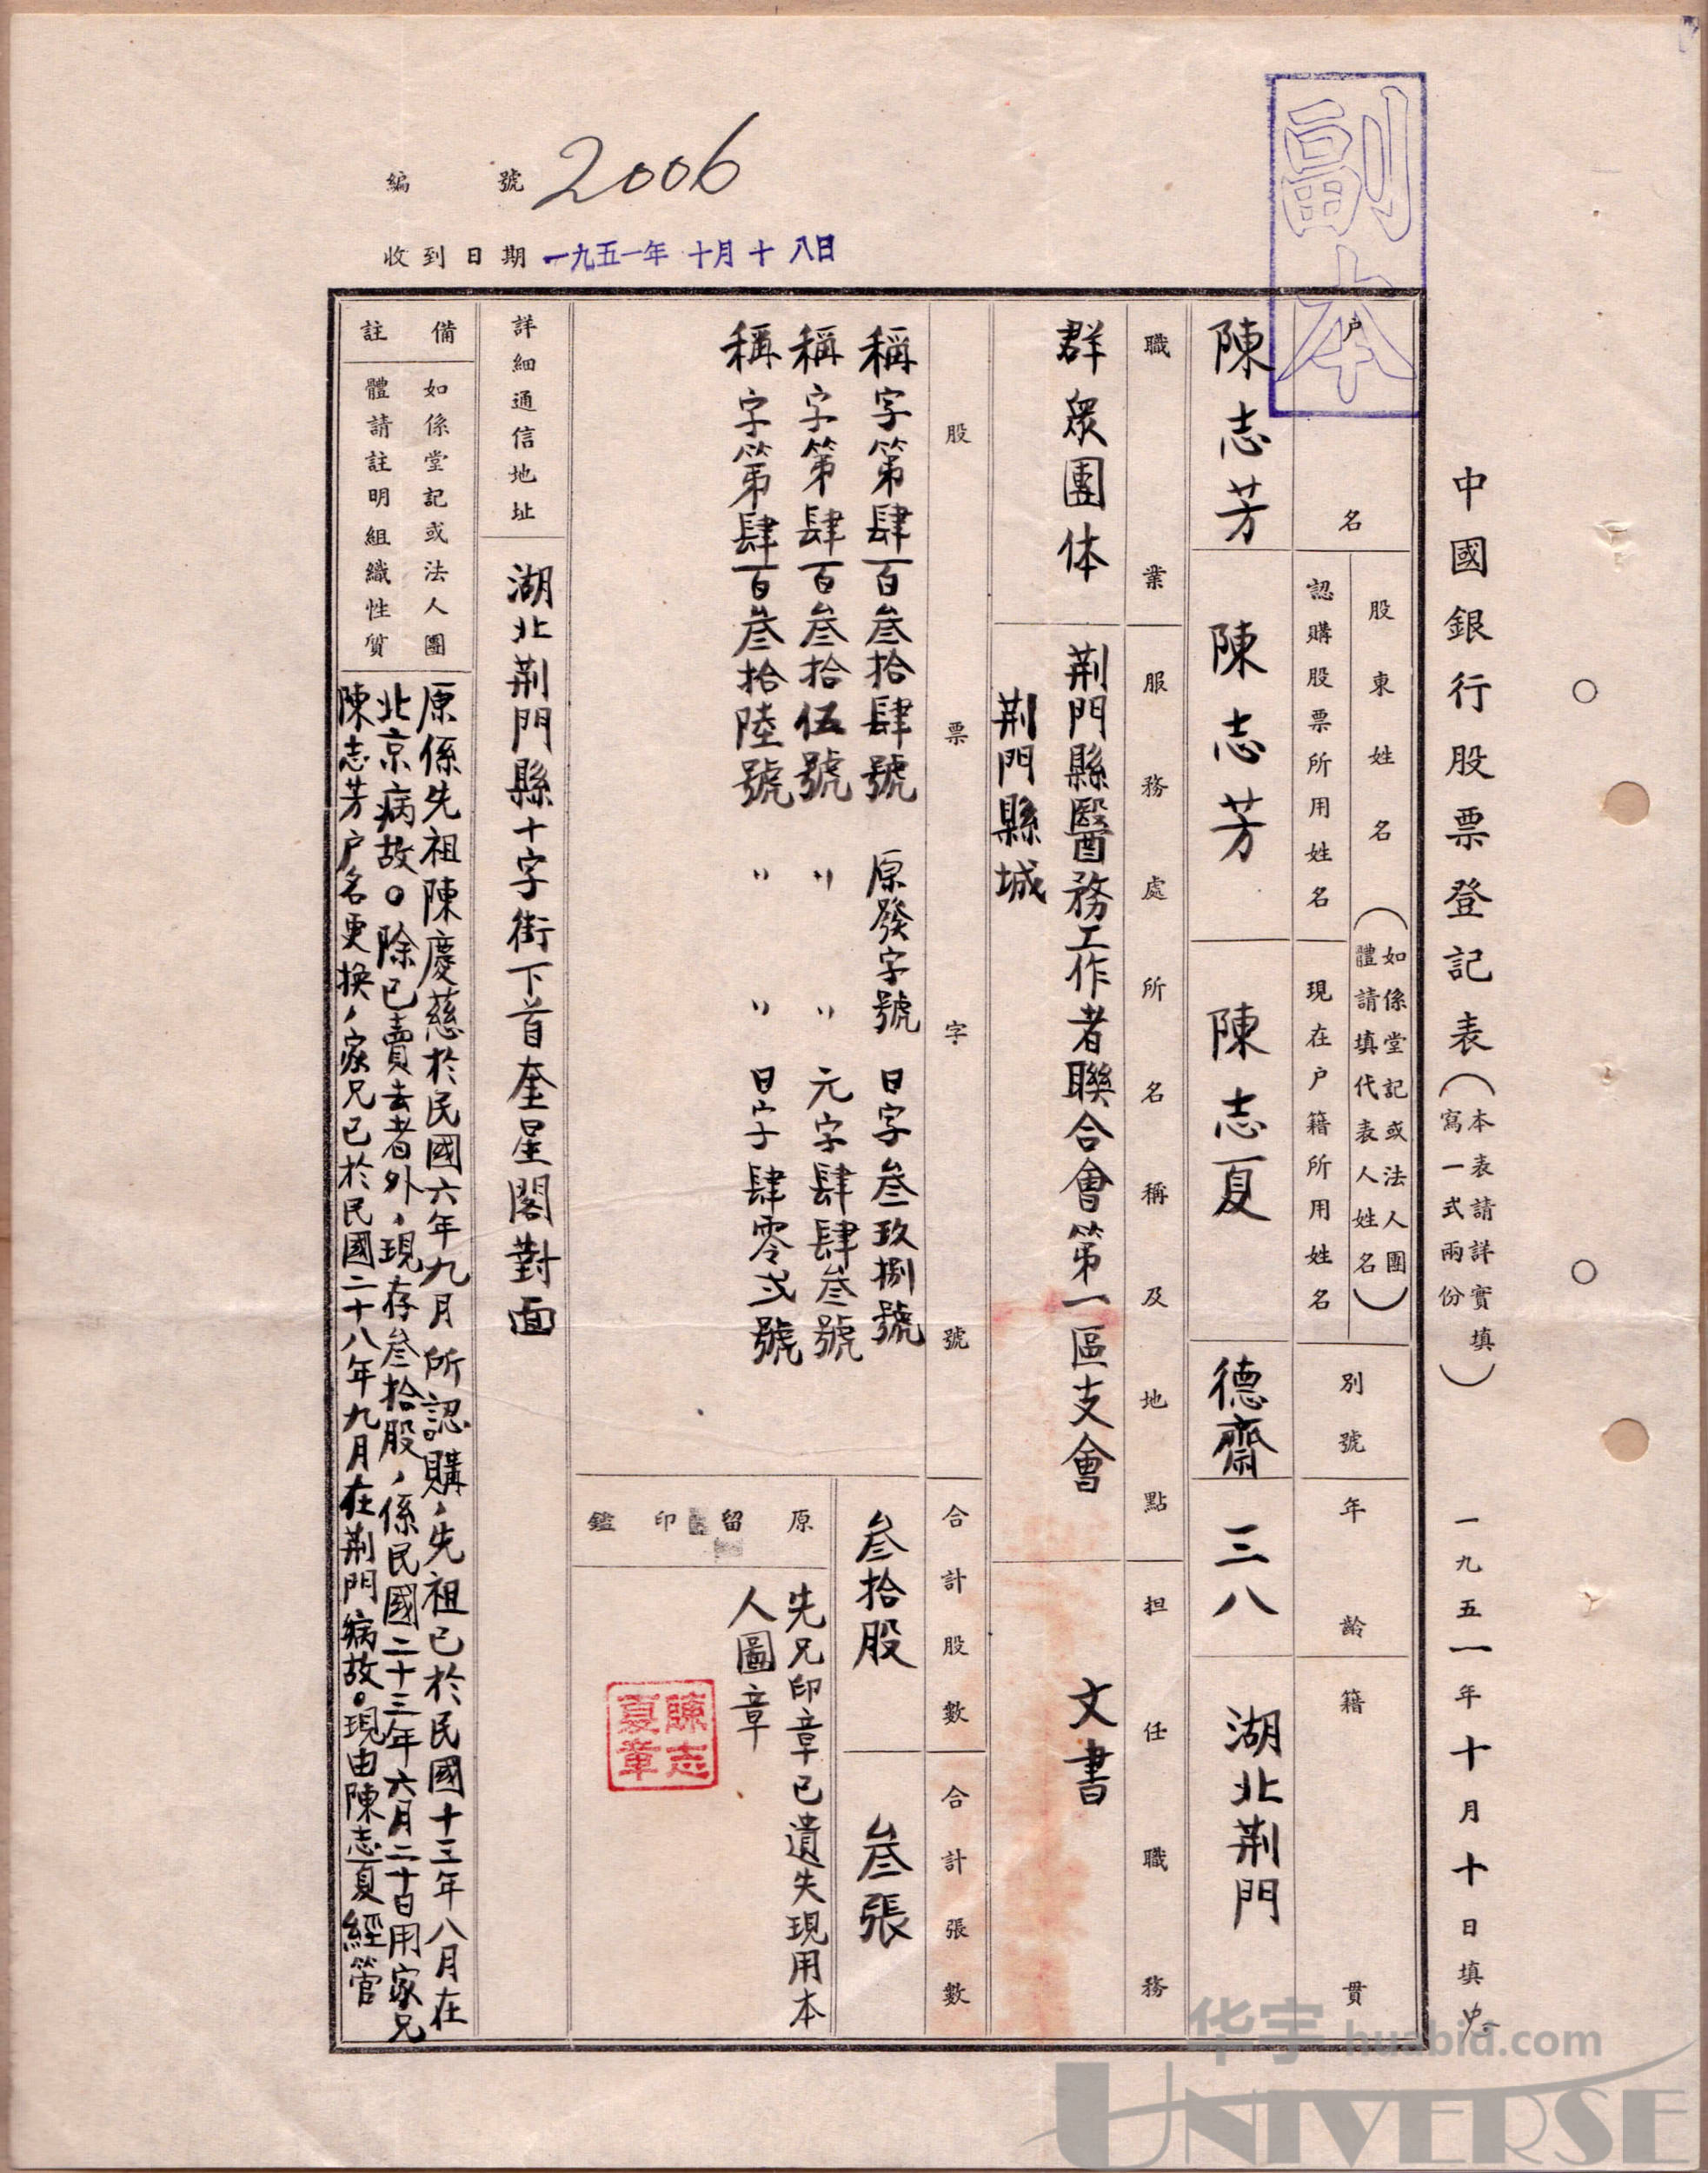 副本
編號 2006
收到日期 一九五一年 十月十八日
中國銀行股票登記表（本表請詳實填寫一式兩份） 一九五一年十月十日填
戶名
陳志芳
股東姓名（如係堂記或法人團體請填代表人姓名）
認購股票所用姓名
陳志芳
現在戶籍所用姓名
陳志夏
別號
德齋
年齡
三八
籍貫
湖北荆門
職業
群眾團体
服務處所名稱及地點
荆門縣醫務工作者聯合會第一區支會
荆門縣城
担任職務
文書
股票字號
稱字第肆百叁拾肆號 原發字號 日字叁玖捌號
稱字第肆百叁拾伍號 〃 〃 元字肆肆叁號
稱字第肆百叁拾陸號 〃 〃 日字肆零弍號
合計股數
叁拾股
合計張數
叁張
原留印鑑
先兄印章已遺失現用本
人圖章
陳志夏章
詳細通信地址
湖北荆門縣十字街下首奎星閣對面
備註
如係堂記或法人團
體請註明組織性質
原係先祖陳慶慈於民國六年九月所認購，先祖已於民國十三年八月在
北京病故。除已賣去者外，現存叁拾股，係民國二十三年六月二十日用家兄
陳志芳户名更换，家兄已於民國二十八年九月在荆門病故。現由陳志夏經管
华宇 huabid.com
UNIVERSE